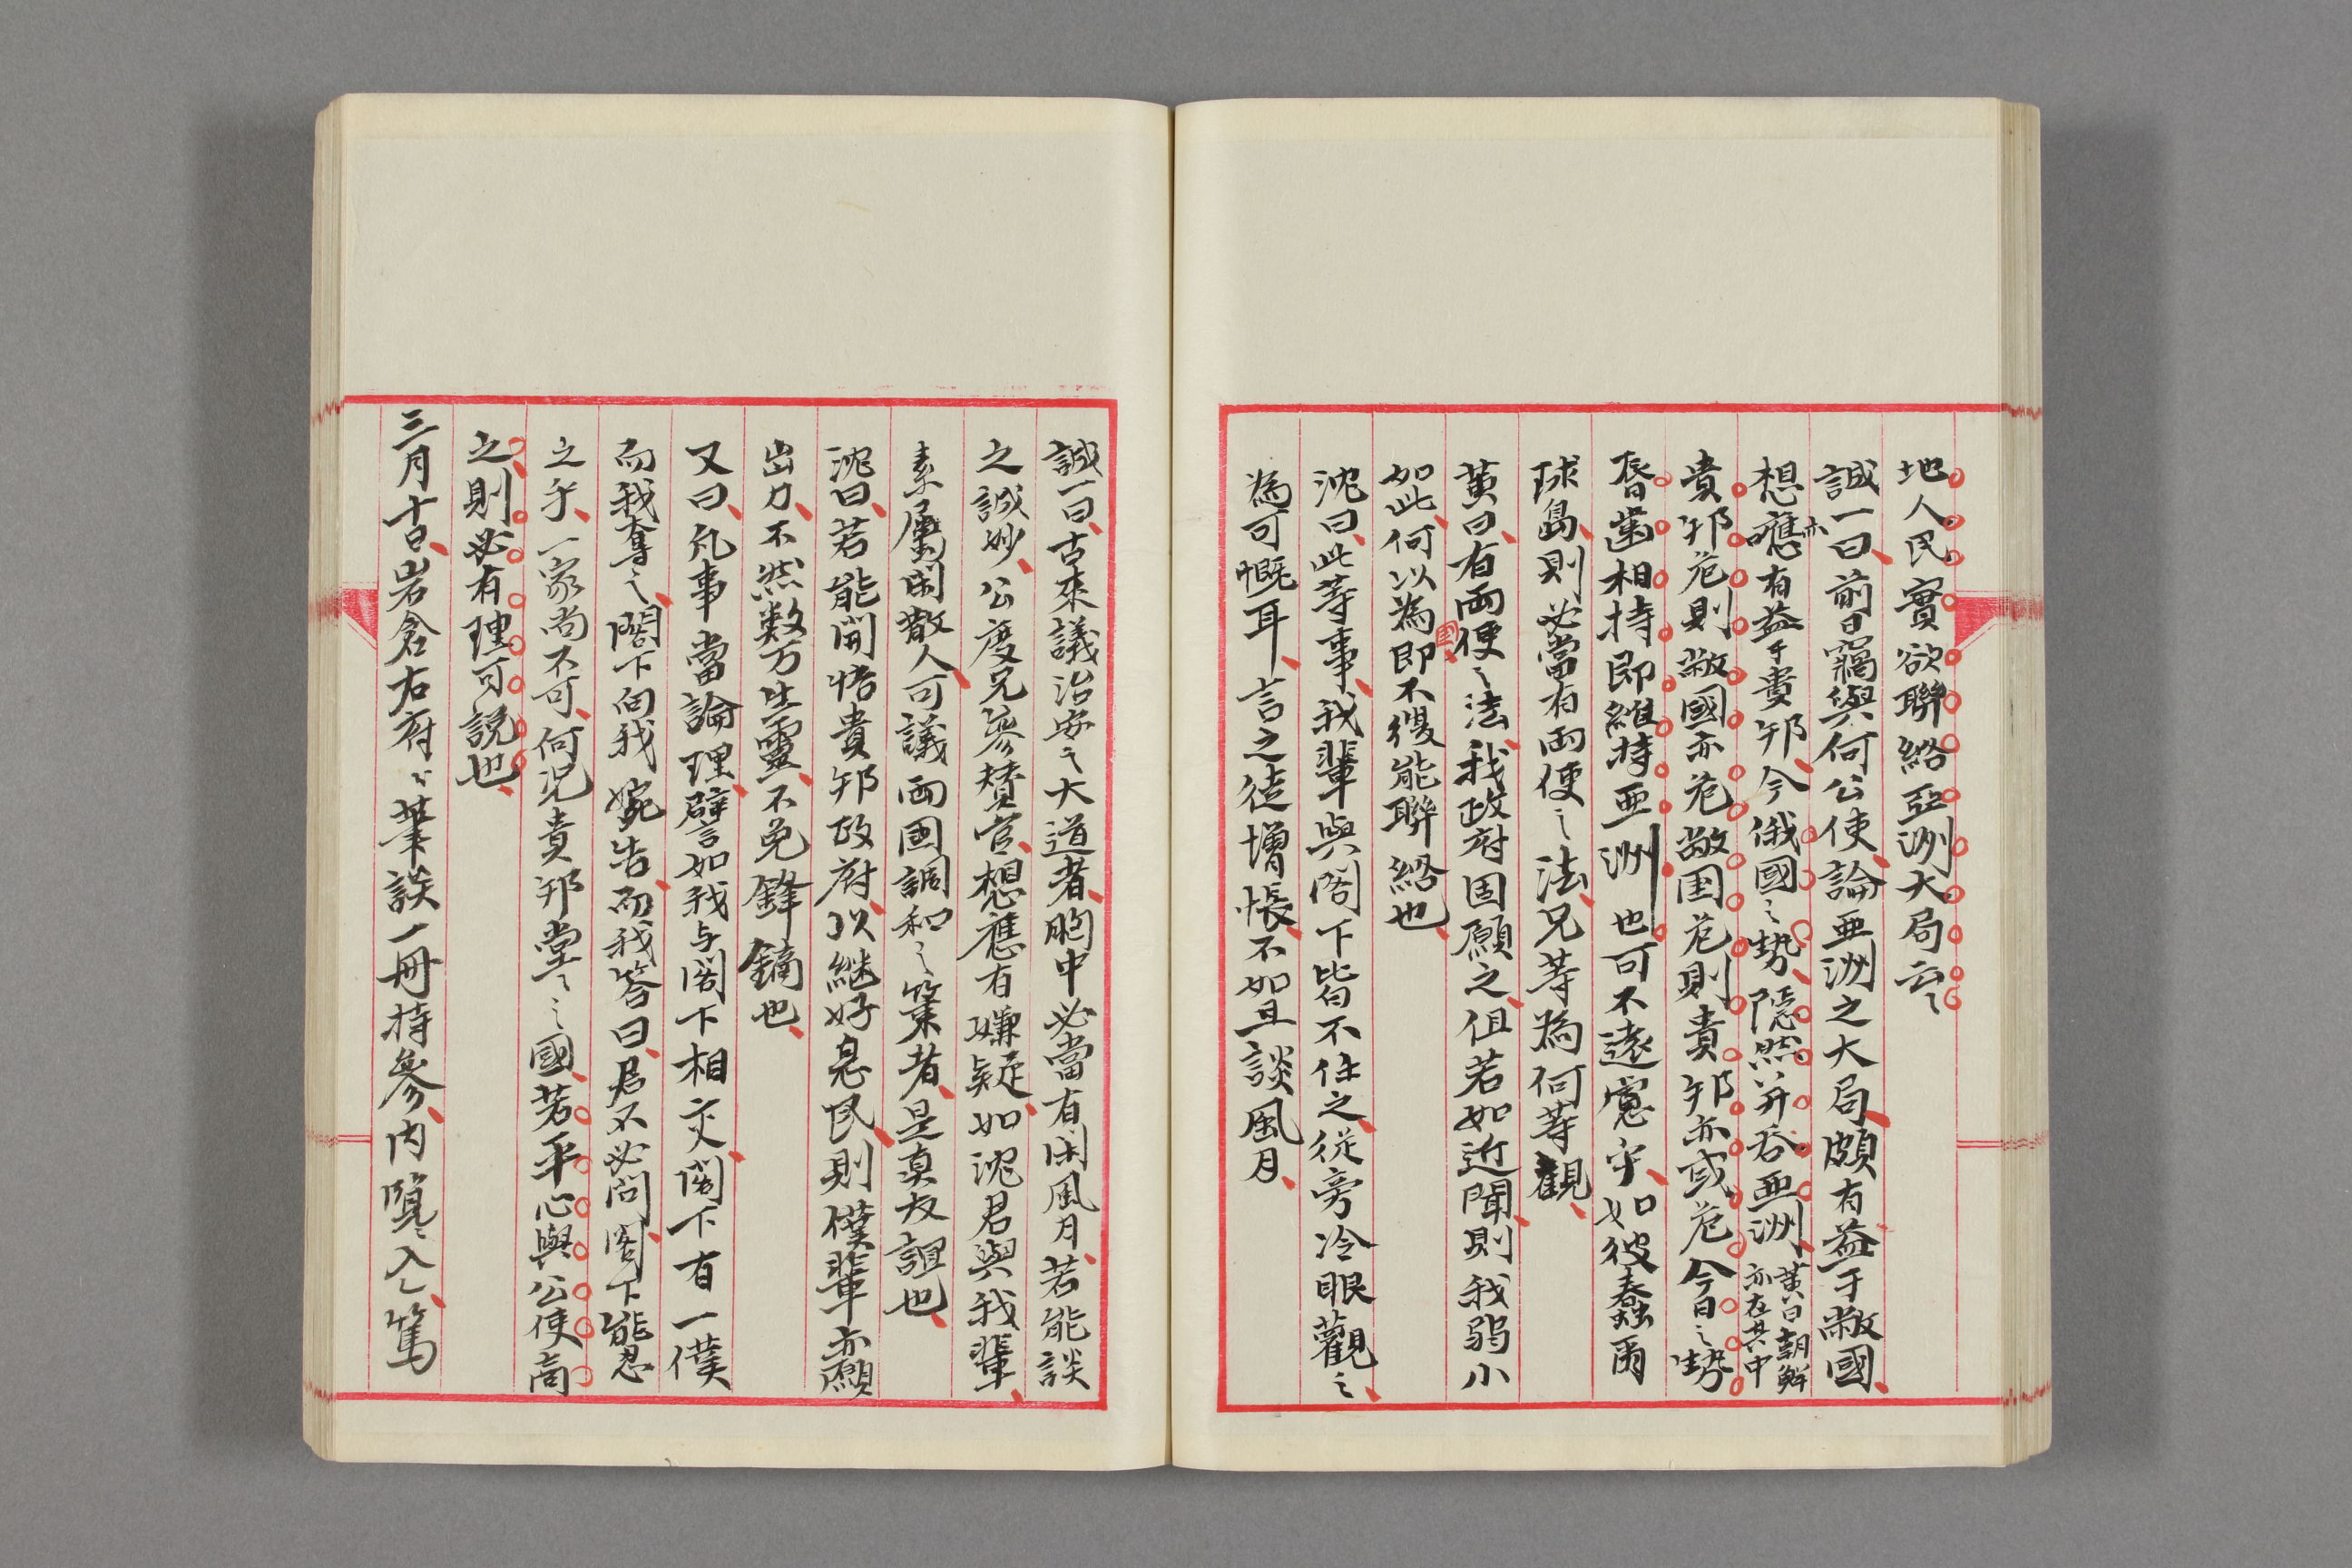 地人民實欲聯絡亞洲大局云〻
誠一曰前日竊與何公使論亜洲之大局頗有益于敝國
想亦應有益于貴邦今俄國之勢隠然并呑亜洲黄曰朝鮮亦在其中
貴邦危則敝國亦危敝国危則貴邦亦或危今日之勢
唇歯相持即維持亜洲也可不遠慮乎如彼蠢爾
球島則必當有両便之法兄等為何等觀
黄曰有両便之法我政府固願之但若如近聞則我弱小
如此何以為国即不復能聯絡也
沈曰此等事我輩與閣下皆不任之従旁冷眼觀之
為可慨耳言之徒増悵不如且談風月
誠一曰古來議治安之大道者胸中必當有閑風月若能談
之誠妙公度兄参賛官想應有嫌疑如沈君與我輩
素屬閑散人可議両国調和之策者是真友誼也
沈曰若能開悟貴邦政府以継好息民則僕輩亦願
出力不然数万生靈不免鋒鏑也
又曰凡事當論理譬言如我与閣下相交閣下有一僕
而我奪之閣下向我婉告而我答曰君不必問閣下能忍
之乎一家尚不可何况貴邦堂〻之國若平心與公使商
之則必有理可説也
三月十五日岩倉右府公筆談一冊持參内覧ニ入ル篤